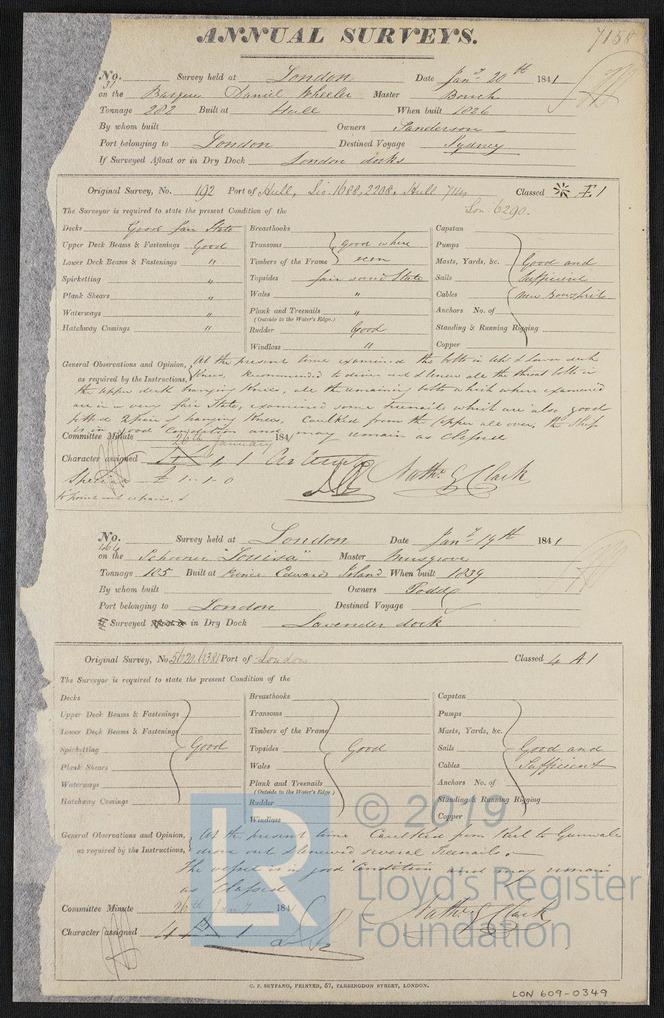 ANNUAL SURVEYS.
7188
No. 31 Survey held at London Date Jany 20th 1841
on the Barque Daniel Wheeler Master Bouch
Tonnage 282 Built at Hull When built 1826
By whom built Owners Sanderson
Port belonging to London Destined Voyage Sydney
If Surveyed Afloat or in Dry Dock London docks
Original Survey, No. 192 Port of Hull, Lio. 1688, 2208, Hull 714 Classed Æ 1
Lon 6290.
The Surveyor is required to state the present Condition of the
Decks Good fair State Breasthooks Capstan
Upper Deck Beams & Fastenings Good Transoms good where Pumps
Lower Deck Beams & Fastenings " Timbers of the Frame seen Masts, Yards, &c. Good and
Spirketting " Topsides fair good State Sails Sufficient
Plank Shears " Wales " Cables New Bowsprit
Waterways " Plank and Treenails " Anchors No. of
(Outside to the Water's Edge.)
Hatchway Comings " Rudder Good Standing & Running Rigging
Windlass " Copper
General Observations and Opinion, At the present time examined the bolts in upper & lower deck
as required by the Instructions, Knees, Recommended to drive and renew all the throat bolts in
the upper deck hanging Knees, all the remaining bolts which when examined
are in a very fair State, examined some Treenails which are also good
fitted 2 pair hanging Knees, Caulked from the Copper all over, the Ship
is in good Condition and may remain as Classed
Committee Minute 26th January 184
Character assigned Æ 1
Special £ 1..1.0 Nathl. G Clark
No. 166 Survey held at London Date Jany 19th 1841
on the Schooner "Louisa" Master Musgrove
Tonnage 105 Built at Prince Edward Island When built 1839
By whom built Owners Todd
Port belonging to London Destined Voyage
Surveyed in Dry Dock Lavender dock
Original Survey, No. 5620, 6381 Port of London Classed 4 A 1
The Surveyor is required to state the present Condition of the
Decks Breasthooks Capstan
Upper Deck Beams & Fastenings Transoms Pumps
Lower Deck Beams & Fastenings Timbers of the Frame Masts, Yards, &c.
Spirketting Good Topsides Good Sails Good and
Plank Shears Wales Cables Sufficient
Waterways Plank and Treenails Anchors No. of
(Outside to the Water's Edge.)
Hatchway Comings Rudder Standing & Running Rigging
Windlass Copper
General Observations and Opinion, At the present time Caulked from Keel to Gunwale
as required by the Instructions, drove out & renewed several Treenails.
The vessel is in good Condition and may remain
as Classed
Committee Minute 26th Jany 184
Character assigned 4 A 1 Nathl. G Clark
LR © 2019
Lloyd's Register
Foundation
C. F. SEYFANG, PRINTED, 57, FARRINGDON STREET, LONDON.
LON 609-0349